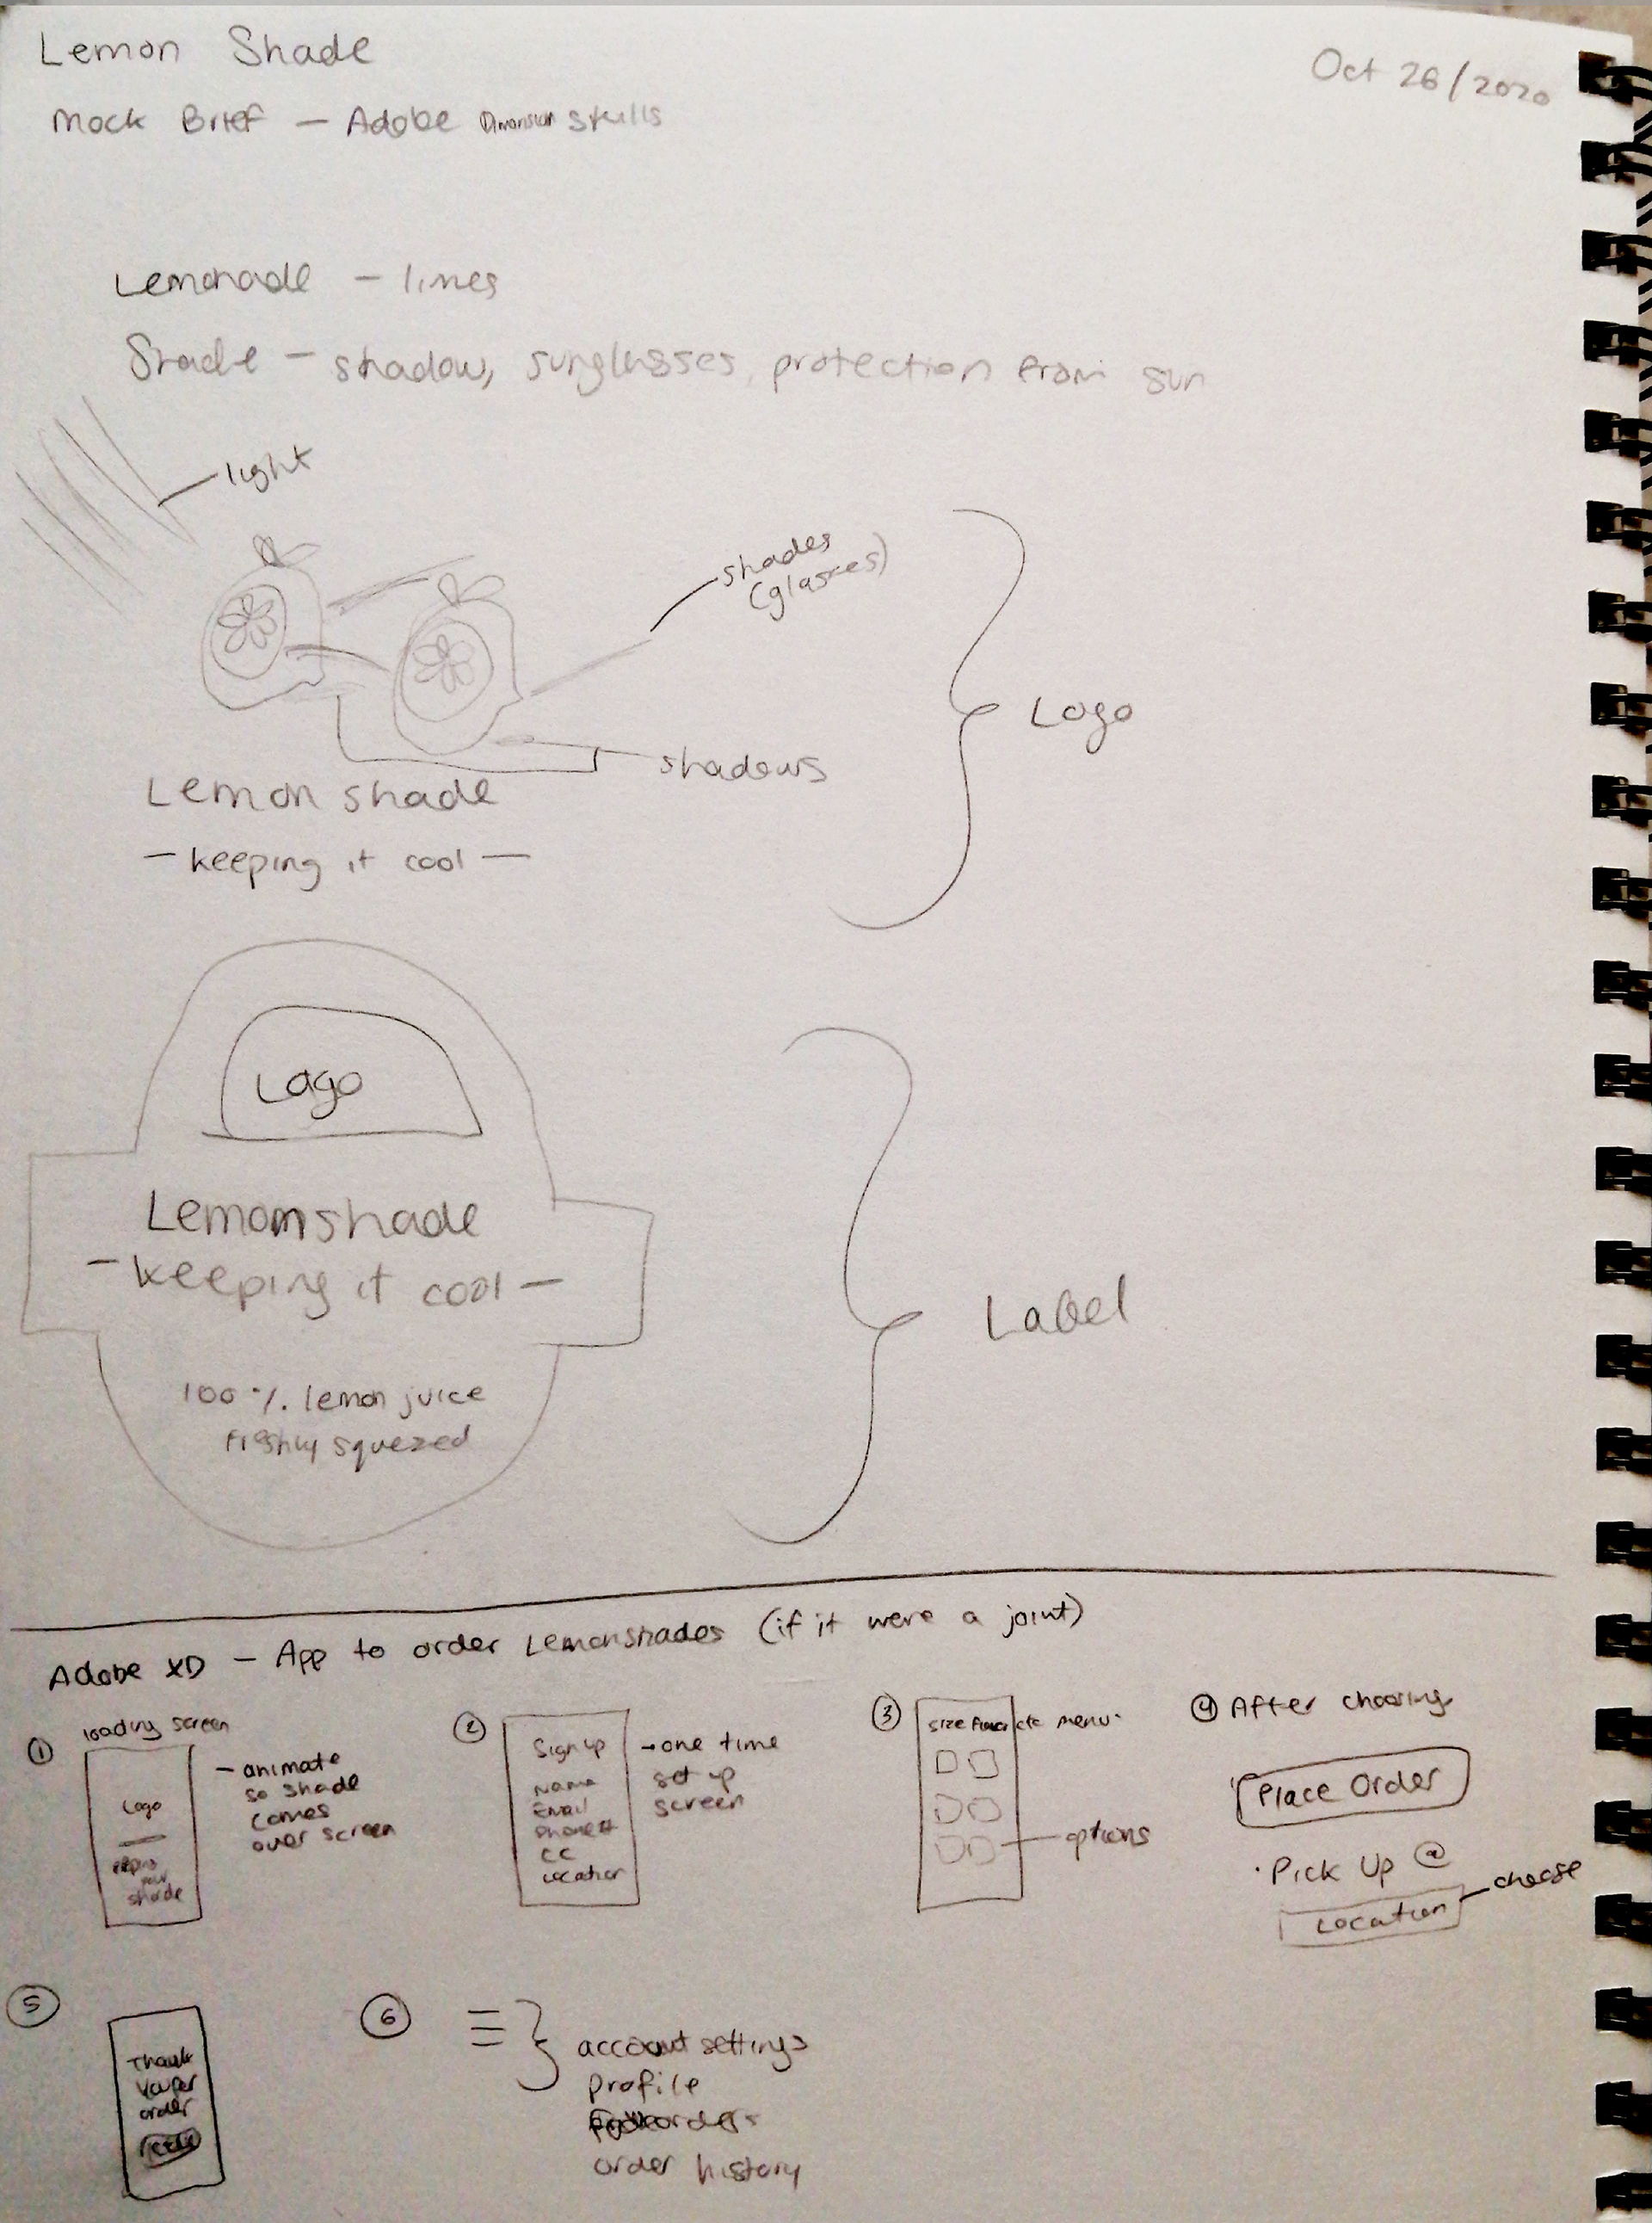 Lemon Shade
Oct 26/2020
Mock Brief — Adobe Dimension skills
Lemonade — lines
Shade — shadow, sunglasses, protection from sun
light
shades
(glasses)
Logo
shadows
Lemon shade
— keeping it cool —
Logo
Lemonshade
— keeping it cool —
Label
100 % lemon juice
freshly squezed
Adobe XD — App to order Lemonshades (if it were a joint)
① loading screen
Logo
your
shade
— animate
so shade
comes
over screen
②
Sign up
Name
Email
Phone #
CC
Location
→ one time
set up
screen
③
size etc menu
options
④ After choosing
Place Order
· Pick Up @
Location
choose
⑤
Thank
You for
order
⑥
account settings
profile
orders
order history